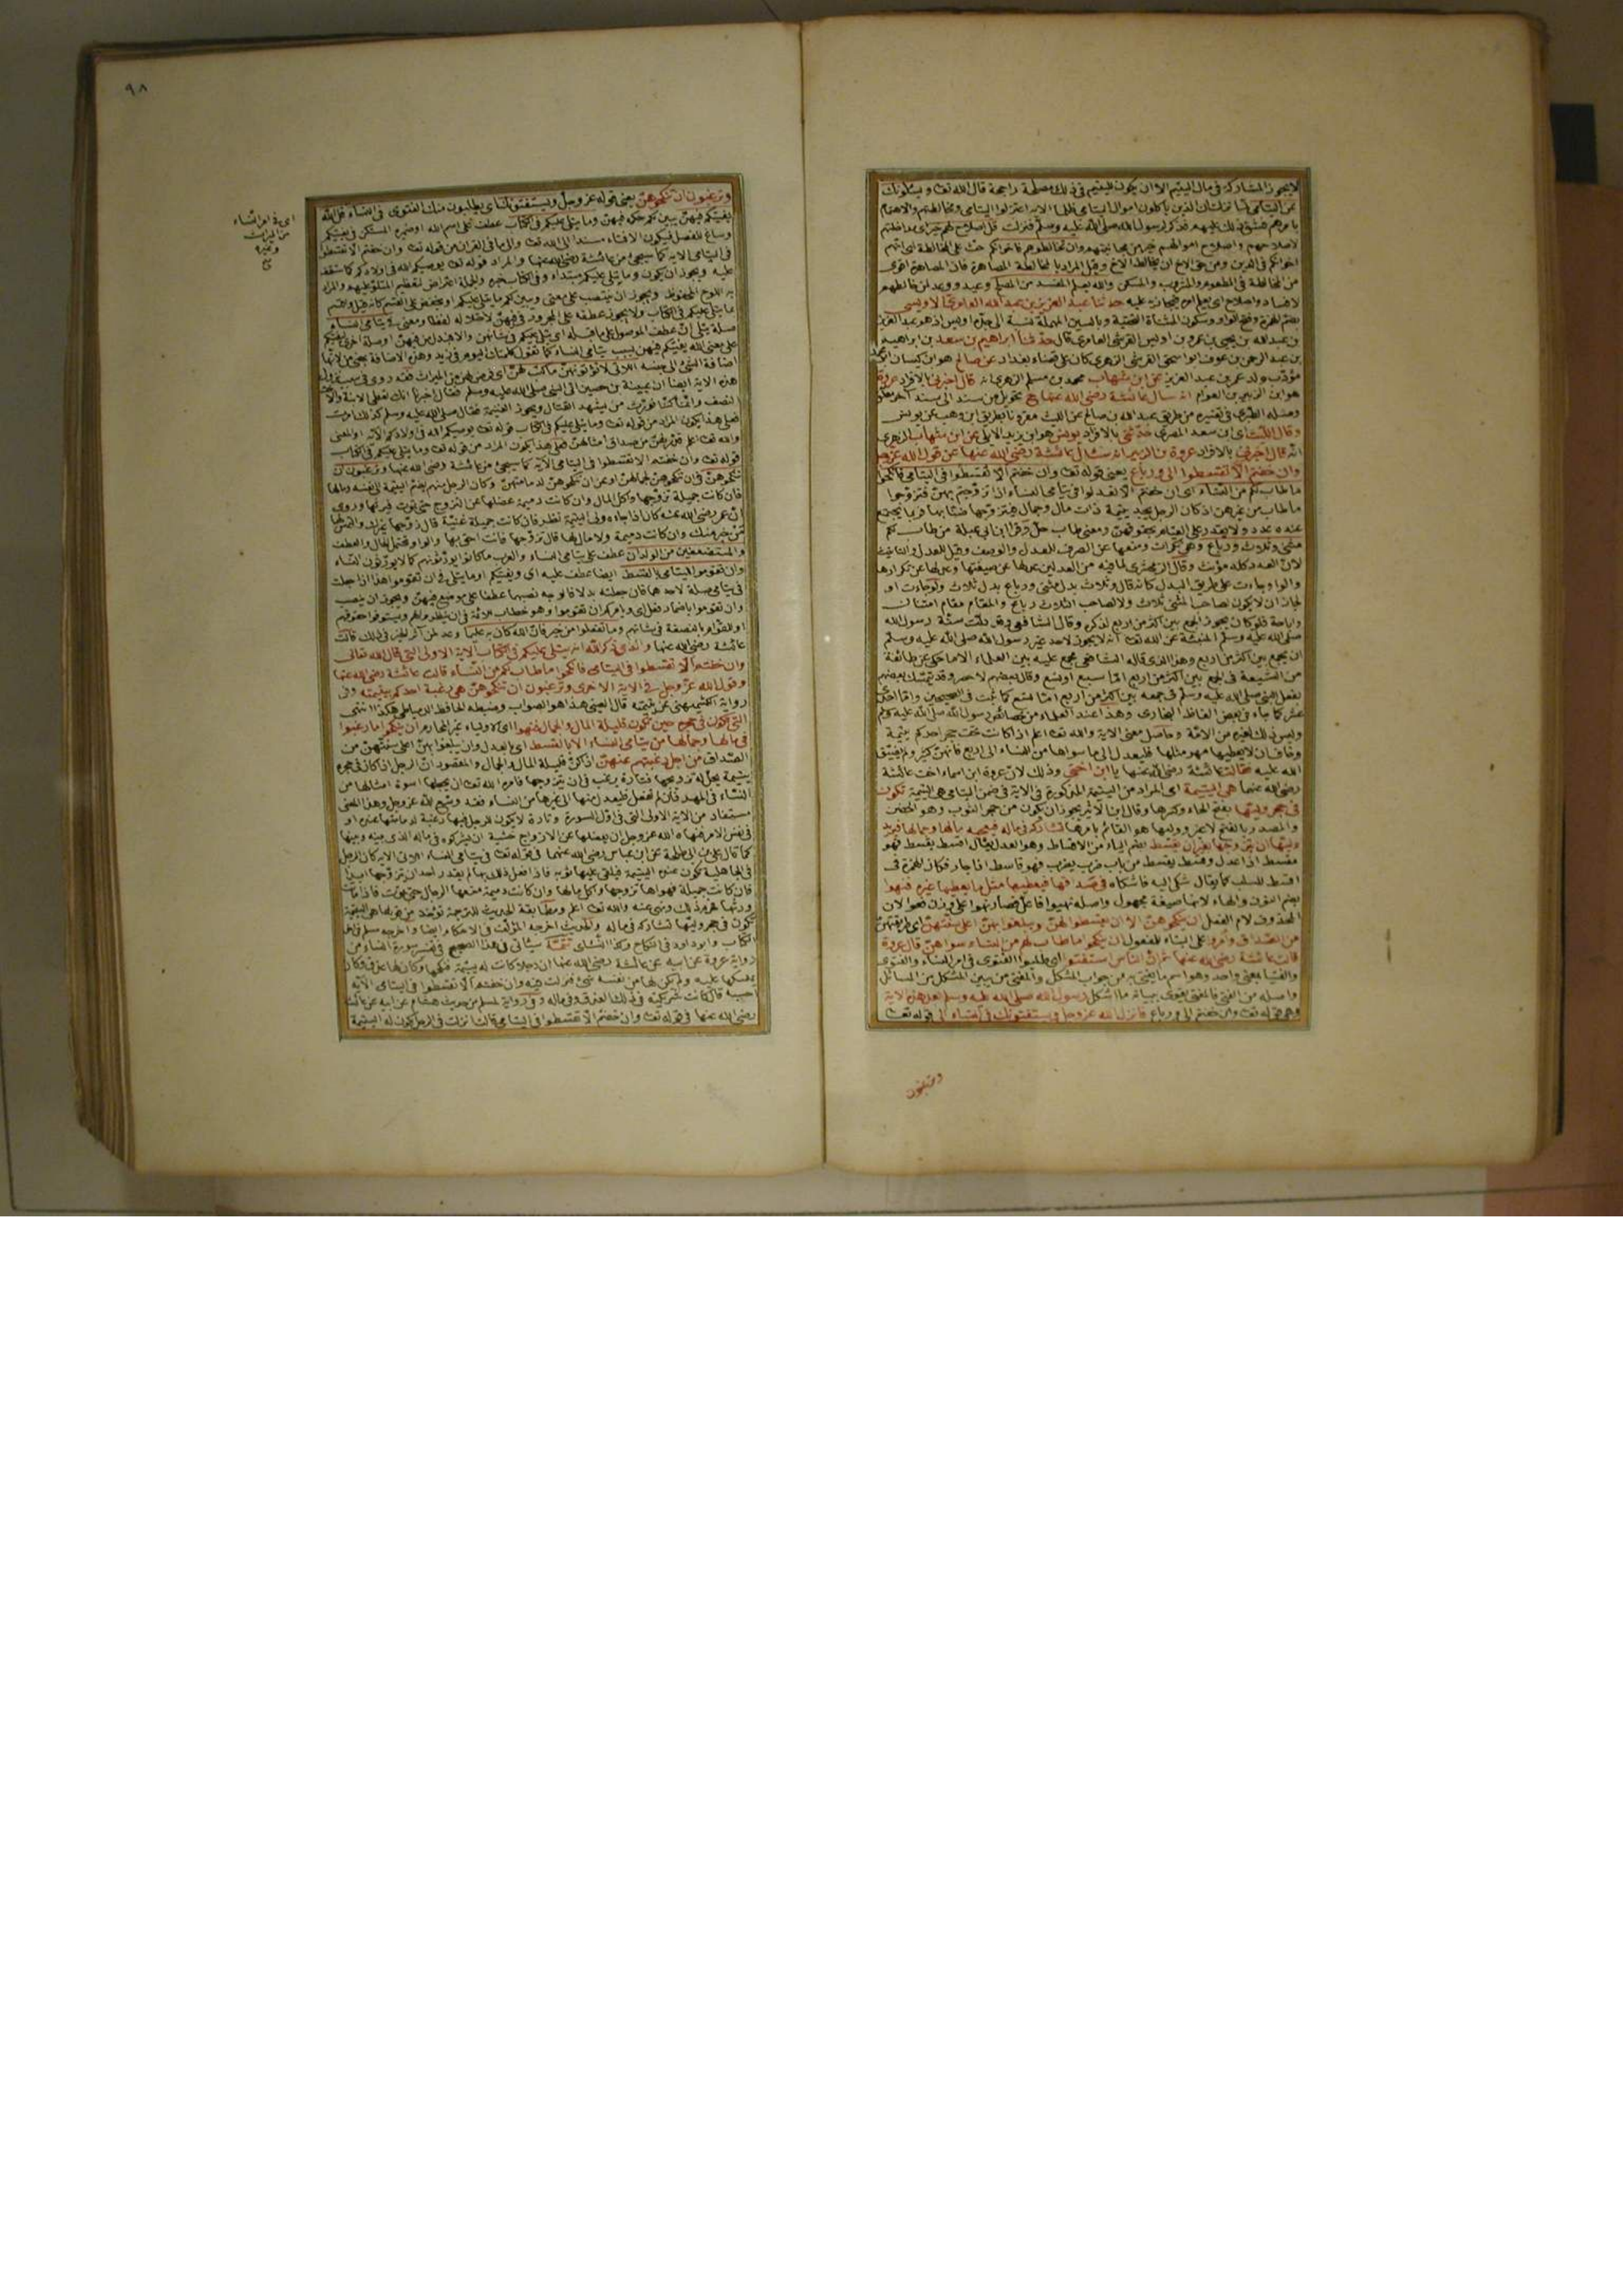 لا يجوز المشاركة في مال اليتيم الا ان يكون لليتيم في ذلك مصلحة راجحة قال الله تعا ويسئلونك
عن اليتامى لما نزلت ان الذين يأكلون اموال اليتامى ظلما الاية اعتزلوا اليتامى ومخالطتهم والاهتمام
بامرهم فشق ذلك عليهم فذكر لرسول الله صلى الله عليه وسلم فنزلت قل اصلاح لهم خير اى مداخلتهم
لاصلاحهم واصلاح اموالهم خير من مجانبتهم وان تخالطوهم فاخوانكم حث على المخالطة اى انهم
اخوانكم في الدين ومن حق الاخ ان يخالط الاخ وقيل المراد بالمخالطة المصاهرة
من المخالطة في المطعوم والمشروب والمسكن والله يعلم المفسد من المصلح وعيد ووعد لمن خالطهم
لافساد واصلاح اى يعلم امره فيجازيه عليه حدثنا عبد العزيز بن عبد الله العامرى الاويسى
بضم الهمزة وفتح الواو وسكون المثناة التحتية وبالسين المهملة نسبة الى جده اويس اذ هو عبد العزيز
بن عبد الله بن يحيى بن عمرو بن اويس القرشى العامرى قال حدثنا ابراهيم بن سعد بن ابراهيم
بن عبد الرحمن بن عوف ابو اسحق القرشى الزهرى كان على قضاء بغداد عن صالح هو ابن كيسان
مؤدب ولد عمر بن عبد العزيز عن ابن شهاب محمد بن مسلم الزهرى انه قال اخبرنى بالافراد عروة
هو ابن الزبير بن العوام انه سأل عائشة رضى الله عنها ح تحويل من سند الى سند آخر
وصله الطبرى في تفسيره من طريق عبد الله بن صالح عن الليث مقرونا بطريق ابن وهب عن يونس
وقال الليث اى ابن سعد المصرى حدثنى بالافراد يونس هو ابن يزيد الايلى عن ابن شهاب الزهرى
انه قال اخبرنى بالافراد عروة بن الزبير انه سأل عائشة رضى الله عنها عن قول الله عز وجل
وان خفتم الا تقسطوا الى ورباع يعنى قوله تعا وان خفتم الا تقسطوا في اليتامى فانكحوا
ما طاب لكم من النساء اى ان خفتم الا تعدلوا في يتامى النساء اذا تزوجتم بهن فتزوجوا
ما طاب من غيرهن اذ كان الرجل يجد يتيمة ذات مال وجمال فيتزوجها ضنا بها فربما يجتمع
عنده عدد ولا يقدر على القيام بحقوقهن ومعنى طاب حل وقرأ ابن ابى عبلة من طاب لكم
مثنى وثلاث ورباع وهى نكرات ومنعها عن الصرف للعدل والوصف وقيل للعدل والتأنيث
لان العدد كله مؤنث وقال الزمخشرى لما فيه من العدلين عدلها عن صيغتها وعدلها عن تكرارها
والواو جاءت على طريق البدل كأنه قال وثلاث بدل مثنى ورباع بدل ثلاث ولو جاءت او
لجاز ان لا يكون لصاحب المثنى ثلاث ولا لصاحب الثلاث رباع والمقام مقام امتنان
واباحة فلو كان يجوز الجمع بين اكثر من اربع لذكره وقال الشافعى وقد دلت سنة رسول الله
صلى الله عليه وسلم المبينة عن الله تعا انه لا يجوز لاحد غير رسول الله صلى الله عليه وسلم
ان يجمع بين اكثر من اربع وهذا الذى قاله الشافعى مجمع عليه بين العلماء الا ما حكى عن طائفة
من الشيعة في الجمع بين اكثر من اربع اما سبع او تسع وقال بعضهم لا حصر وقد تمسك بعضهم
بفعل النبى صلى الله عليه وسلم في جمعه بين اكثر من اربع اما تسع كما ثبت في الصحيحين واما احدى
عشر كما جاء في بعض الفاظ البخارى وهذا عند العلماء من خصائص رسول الله صلى الله عليه وسلم
وليس ذلك لغيره من الامة وحاصل معنى الاية والله تعا اعلم اذا كانت تحت حجر احدكم يتيمة
وخاف ان لا يعطيها مهر مثلها فليعدل الى ما سواها من النساء الى اربع فانهن كثير ولم يضيق
الله عليه فقالت عائشة رضى الله عنها يا ابن اختى وذلك لان عروة ابن اسماء اخت عائشة
رضى الله عنها هى اليتيمة اى المراد من اليتيمة المذكورة في الاية في ضمن اليتامى هى اليتيمة تكون
في حجر وليها بفتح الحاء وكسرها وقال ابن الاثير يجوز ان يكون من حجر الثوب وهو الحضن
والمصدر بالفتح لا غير ووليها هو القائم بامرها تشاركه في ماله فيعجبه مالها وجمالها فيريد
وليها ان يتزوجها بغير ان يقسط بضم الياء من الاقساط وهو العدل يقال اقسط يقسط فهو
مقسط اذا عدل وقسط يقسط من باب ضرب يضرب فهو قاسط اذا جار فكأن الهمزة في
اقسط للسلب كما يقال شكى اليه فاشكاه في صداقها فيعطيها مثل ما يعطيها غيره فنهوا
بضم النون والهاء لانها صيغة مجهول واصله نهيوا فاعل فصار نهوا على وزن فعوا لان
المحذوف لام الفعل ان ينكحوهن الا ان يقسطوا لهن ويبلغوا بهن اعلى سنتهن اى طريقتهن
من الصداق وامروا على البناء للمفعول ان ينكحوا ما طاب لهم من النساء سواهن قال عروة
قالت عائشة رضى الله عنها ثم ان الناس استفتوا اى طلبوا الفتوى في امر النساء والفتوى
والفتيا بمعنى واحد وهو اسم ما يفتى به من جواب المشكل والمفتى من يبين المشكل من المسائل
واصله من الفتى فالمفتى يقوى ببيانه ما اشكل رسول الله صلى الله عليه وسلم بعد هذه الاية
وهى قوله تعا وان خفتم الى ورباع فانزل الله عز وجل ويستفتونك في النساء الى قوله تعا
وترغبون
٩٨
وترغبون ان تنكحوهن يعنى قوله عز وجل ويستفتونك اى يطلبون منك الفتوى في النساء قل الله
يفتيكم فيهن يبين لكم حكمه فيهن وما يتلى عليكم في الكتاب عطف على اسم الله او ضميره المستكن في يفتيكم
وساغ للفصل فيكون الافتاء مسندا الى الله تعا والى ما في القرآن من قوله تعا وان خفتم الا تقسطوا
في اليتامى الاية كما سيجئ من عائشة رضى الله عنها والمراد قوله تعا يوصيكم الله في اولادكم
عليه ويجوز ان يكون وما يتلى عليكم مبتداء وفى الكتاب خبره والجملة اعتراض لتعظيم المتلو عليهم والمراد
به اللوح المحفوظ ويجوز ان ينتصب على معنى ويبين لكم ما يتلى عليكم او يخفض على القسم كأنه قيل واقسم
بما يتلى عليكم في الكتاب ولا يجوز عطفه على المجرور في فيهن لاختلاله لفظا ومعنى في يتامى النساء
صلة يتلى ان عطف الموصول على ما قبله اى يتلى عليكم في شأنهن والا فبدل من فيهن او صلة اخرى ليفتيكم
على معنى الله يفتيكم فيهن بسبب يتامى النساء كما تقول كلمتك اليوم في زيد وهذه الاضافة بمعنى من لانها
اضافة الشئ الى جنسه اللاتى لا تؤتونهن ما كتب لهن اى فرض لهن من الميراث فقد روى في سبب نزول
هذه الاية ايضا ان عيينة بن حصين اتى النبى صلى الله عليه وسلم فقال اخبرنا انك تعطى الابنة والاخت
النصف وانما كنا نورث من يشهد القتال ويجوز الغنيمة فقال صلى الله عليه وسلم كذلك امرت
فعلى هذا يكون المراد من قوله تعا وما يتلى عليكم في الكتاب قوله تعا يوصيكم الله في اولادكم الاية او المعنى
والله تعا اعلم من صداق امثالهن فعلى هذا يكون المراد من قوله تعا وما يتلى عليكم في الكتاب
قوله تعا وان خفتم الا تقسطوا في اليتامى الاية كما سيجئ من عائشة رضى الله عنها وترغبون ان
تنكحوهن في ان تنكحوهن لجمالهن او عن ان تنكحوهن لدمامتهن وكان الرجل منهم يضم اليتيمة الى نفسه ومالها
فان كانت جميلة تزوجها واكل المال وان كانت دميمة عضلها عن التزوج حتى تموت فيرثها وروى
ان عمر رضى الله عنه كان اذا جاءه ولى اليتيمة نظر فان كانت جميلة غنية قال زوجها غيرك والتمس لها
من خير منك وان كانت دميمة ولا مال لها قال تزوجها فانت احق بها والواو تحتمل الحال والعطف
والمستضعفين من الولدان عطف على يتامى النساء والعرب ما كانوا يورثونهم كما لا يورثون النساء
وان تقوموا لليتامى بالقسط ايضا عطف عليه اى ويفتيكم او ما يتلى في ان تقوموا هذا اذا جعلت
في يتامى صلة لاحدهما فان جعلته بدلا فالوجه نصبهما عطفا على موضع فيهن ويجوز ان ينصب
وان تقوموا باضمار فعل اى ويأمركم ان تقوموا وهو خطاب للائمة في ان ينظروا لهم ويستوفوا حقوقهم
او للقوام بالنصفة في شأنهم وما تفعلوا من خير فان الله كان به عليما وعد لمن آثر الخير في ذلك قالت
عائشة رضى الله عنها والذى ذكر الله انه يتلى عليكم في الكتاب الاية الاولى التى قال الله تعالى
وان خفتم الا تقسطوا في اليتامى فانكحوا ما طاب لكم من النساء قالت عائشة رضى الله عنها
وقول الله عز وجل في الاية الاخرى وترغبون ان تنكحوهن هى رغبة احدكم بيتيمته وفى
رواية الكشميهنى عن يتيمته قال العينى هذا هو الصواب وضبطه الحافظ الدمياطى هكذا انتهى
التى تكون في حجره حين تكون قليلة المال والجمال فنهوا اى الاولياء غير المحارم ان ينكحوا ما رغبوا
في مالها وجمالها من يتامى النساء الا بالقسط اى العدل وان يبلغوا بهن اعلى سنتهن من
الصداق من اجل رغبتهم عنهن اذ كن قليلة المال والجمال والمقصود ان الرجل اذا كان في حجره
يتيمة يحل له تزويجها فتارة يرغب في ان يتزوجها فامره الله تعا ان يجعلها اسوة امثالها من
النساء في المهر فان لم يفعل فليعدل منها الى غيرها من النساء فقد وسع الله عز وجل وهذا المعنى
مستفاد من الاية الاولى التى في اول السورة وتارة لا يكون للرجل فيها رغبة لدمامتها عنده او
في نفس الامر فنهاه الله عز وجل ان يعضلها عن الازواج خشية ان يشركوه في ماله الذى بينه وبينها
كما قال على بن ابى طلحة عن ابن عباس رضى الله عنهما في قوله تعا في يتامى النساء اللاتى الاية كان الرجل
في الجاهلية تكون عنده اليتيمة فيلقى عليها ثوبه فاذا فعل ذلك بها لم يقدر احد ان يتزوجها ابدا
فان كانت جميلة فهواها تزوجها واكل مالها وان كانت دميمة منعها الرجال حتى تموت فاذا ماتت
ورثها فحرم ذلك ونهى عنه والله تعا اعلم ومطابقة الحديث للترجمة تؤخذ من قولها هى اليتيمة
تكون في حجر وليها تشاركه في ماله والحديث اخرجه المؤلف في الاحكام ايضا واخرجه مسلم في آخر
الكتاب وابو داود في النكاح وكذا النسائى تتمة سيأتى في هذا الصحيح في تفسير سورة النساء من
رواية عروة عن ابيه عن عائشة رضى الله عنها ان رجلا كانت له يتيمة فنكحها وكان لها عذق وكان
يمسكها عليه ولم يكن لها من نفسه شئ فنزلت فيه وان خفتم الا تقسطوا في اليتامى الاية
احسبه قال كانت شريكته في ذلك العذق وفى ماله وفى رواية لمسلم من حديث هشام عن ابيه عن عائشة
رضى الله عنها في قوله تعا وان خفتم الا تقسطوا في اليتامى قالت انزلت في الرجل تكون له اليتيمة
اى في امر النساء
من الميراث
وغيره